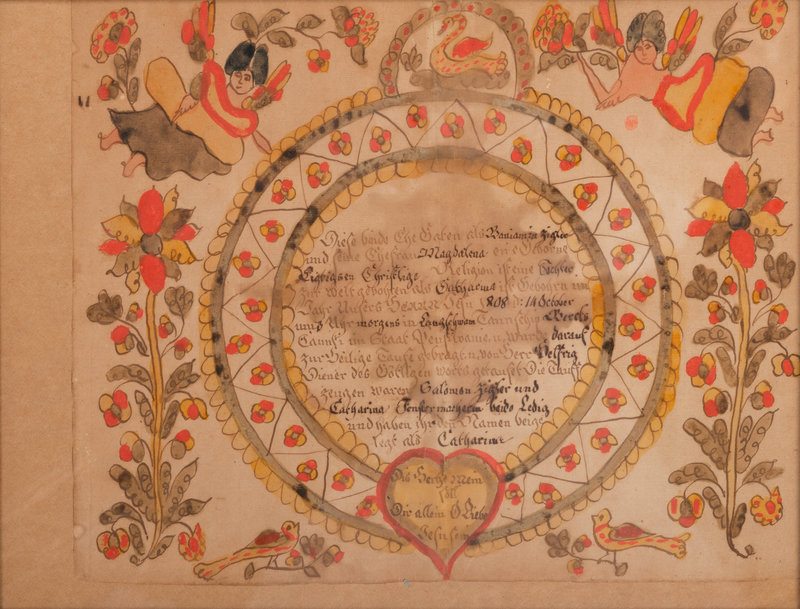 Diese beide Ehe Gaten als Baniamin Zigler
und seine Ehefrau Magdalena en Gebohrne
Religion ist eine Dochter
zur Welt gebohren als Catharina ist Gebohrn um
Jahr Unsers HERRN JEsu 1808 d: 14 October
um Uhr morgens in Langschwam Taunschip Berks
Caunti im Staat Pensilvanie u. wurde darauf
zur Heilige Taufe gebragt n. von Herr
Diener des Götligen worts getauft Die Tauf
zeugen waren Salomon Zigler und
Catharina beide Ledig
und haben ihr den Namen beige
legt als Catharina
Dis Hertz Mein
soll
Dir allein O Liebs
Jesu sein